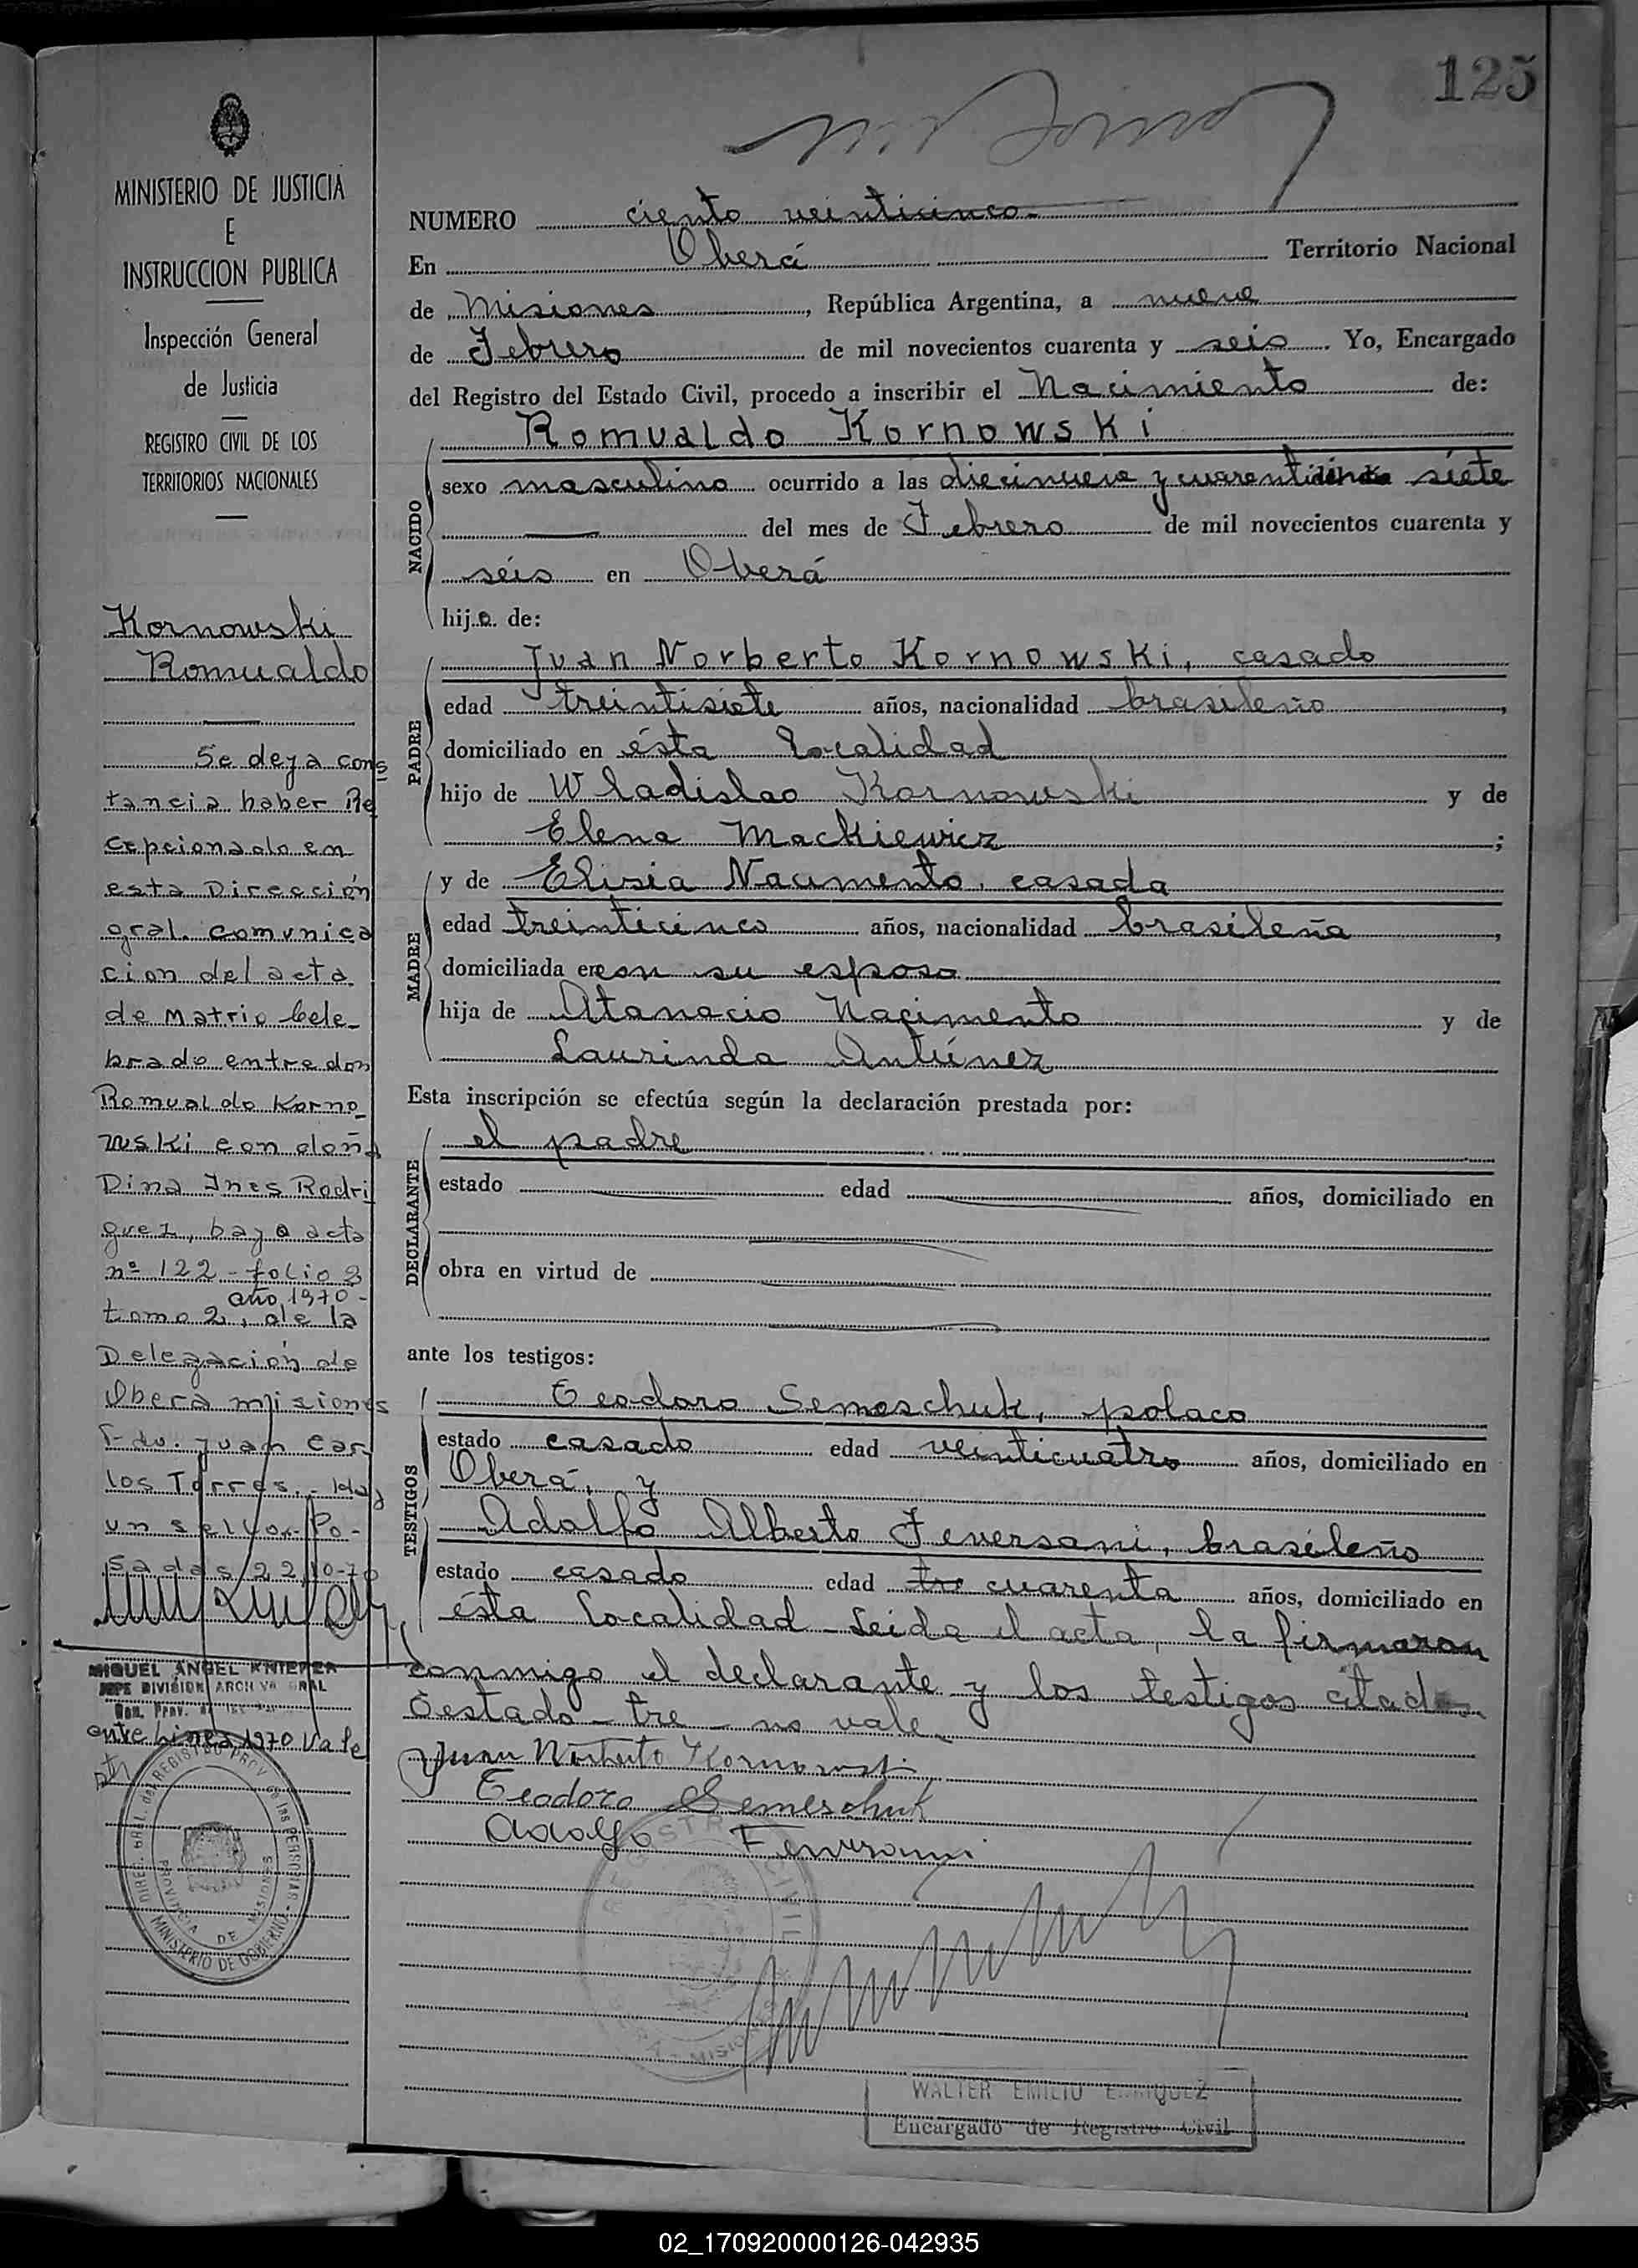 125
MINISTERIO DE JUSTICIA
E
INSTRUCCION PUBLICA
Inspección General
de Justicia
REGISTRO CIVIL DE LOS
TERRITORIOS NACIONALES
Kornowski
Romualdo
Se deja cons
tancia haber Re
cepcionado en
esta Dirección
gral. comunica
cion del acta
de Matrio Cele_
brado entre don
Romualdo Korno_
wski con doña
Dina Ines Rodri
guez, bajo acta
nº 122 - folio 3
año 1970 -
tomo 2, de la
Delegación de
Obera misiones
Fdo. Juan Car
los Torres. - Hay
un sello. Po-
sadas 22-10-70
MIGUEL ANGEL KNIEPER
JEFE DIVISION ARCH
entre linea 1970 Vale
DIREC. GRAL. del REGISTRO PROV. de las PERSONAS -
PROVINCIA DE MISIONES
MINISTERIO DE GOBIERNO
NUMERO ciento veinticinco-
En Oberá Territorio Nacional
de Misiones, República Argentina, a nueve
de Febrero de mil novecientos cuarenta y seis. Yo, Encargado
del Registro del Estado Civil, procedo a inscribir el Nacimiento de:
NACIDO
Romualdo Kornowski
sexo masculino ocurrido a las diecinueve y siete
del mes de Febrero de mil novecientos cuarenta y
séis en Oberá
hijo. de:
PADRE
Juan Norberto Kornowski, casado
edad treintisiete años, nacionalidad brasileño,
domiciliado en ésta localidad
hijo de Wladislao Kornowski y de
Elena Mackiewicz;
MADRE
y de Elisia Nacimento, casada
edad treinticinco años, nacionalidad brasileña,
domiciliada en con su esposo
hija de Atanacio Nacimento y de
Laurinda Antúnez
Esta inscripción se efectúa según la declaración prestada por:
DECLARANTE
el padre
estado edad años, domiciliado en
obra en virtud de
ante los testigos:
TESTIGOS
Teodoro Semeschuk, polaco
estado casado edad veinticuatro años, domiciliado en
Oberá, y
Adolfo Alberto Feversani, brasileño
estado casado edad tre cuarenta años, domiciliado en
ésta localidad - Leida el acta, la firmaron
conmigo el declarante y los testigos citados.
Testado - tre - no vale -
Juan Norberto Kornowski
Teodoro Semeschuk
Adolfo Feversani
REGISTRO CIVIL
MISIONES
WALTER EMILIO ENRIQUEZ
Encargado de Registro Civil
02_170920000126-042935